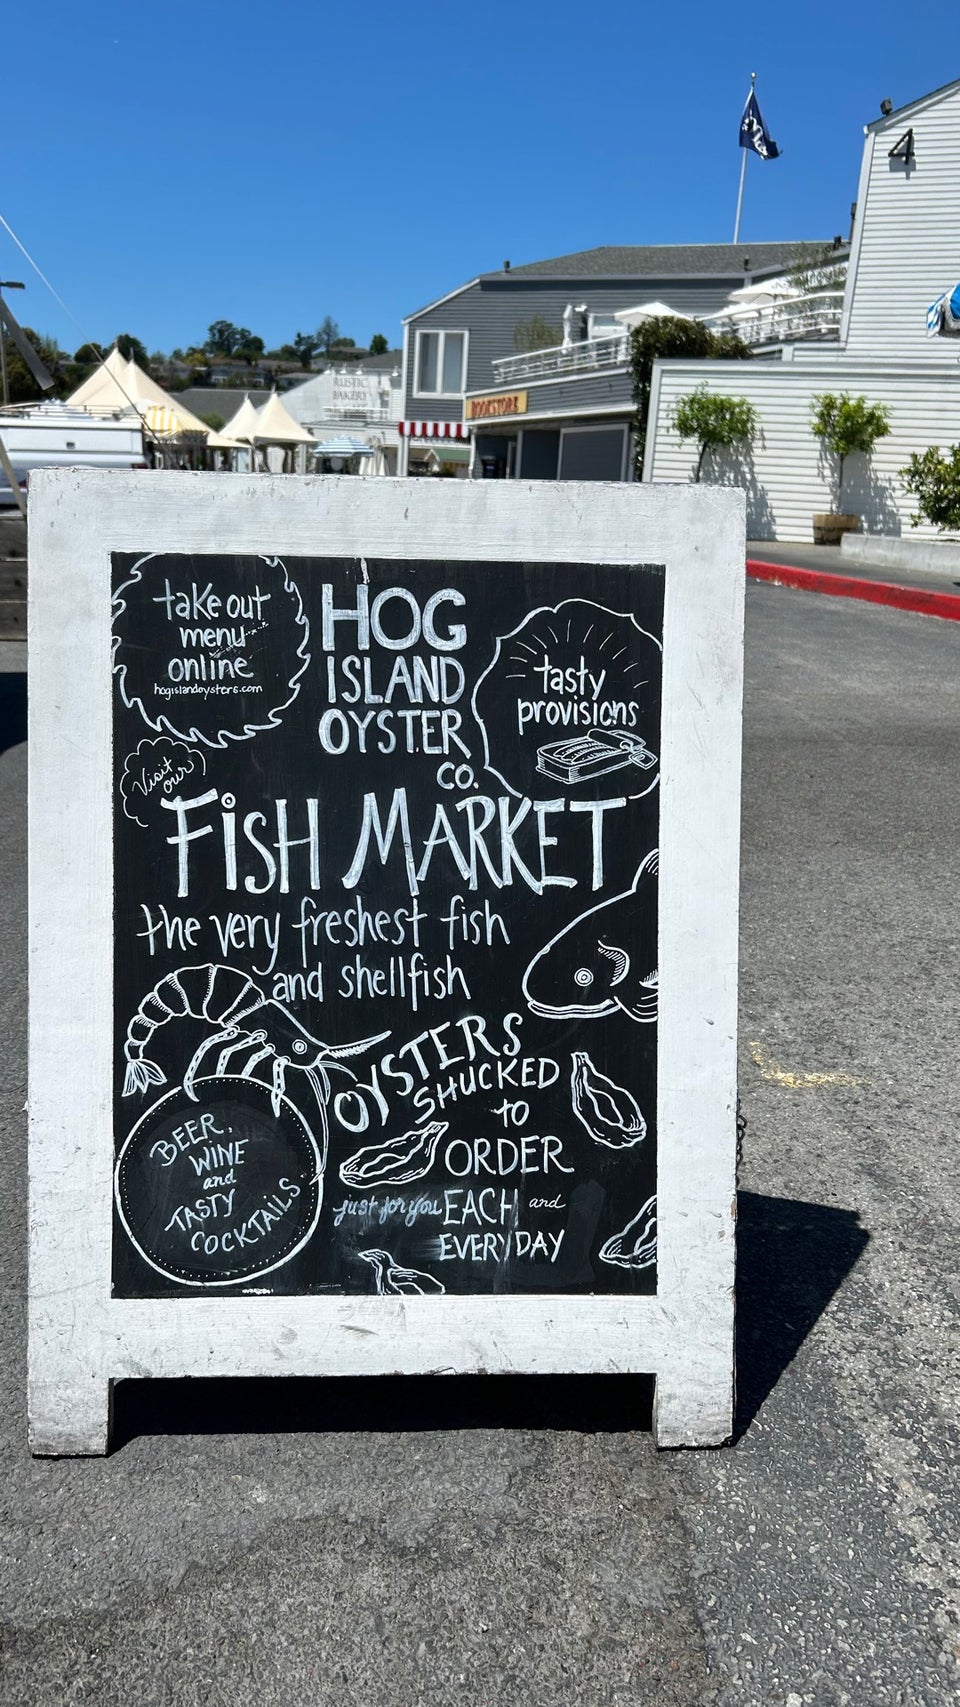 4
RUSTIC
BAKERY
BOOKSTORE
take out
menu
online
hogislandoysters.com
HOG
ISLAND
OYSTER
CO.
tasty
provisions
Visit
our
FiSH MARKET
the very freshest fish
and shellfish
OYSTERS
SHUCKED
to
ORDER
just for you EACH and
EVERYDAY
BEER,
WINE
and
TASTY
COCKTAILS